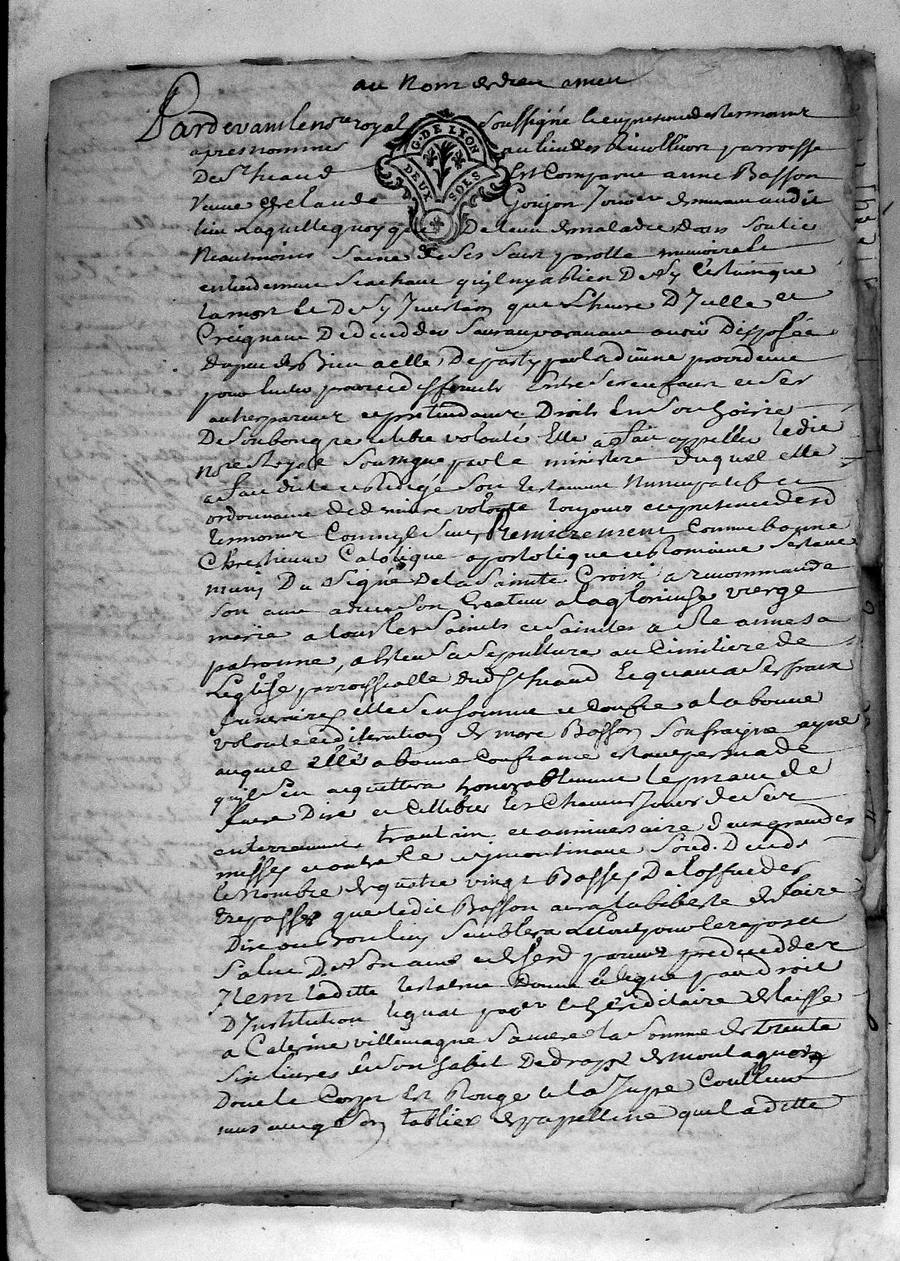 au Nom de dieu amen
Pardevant le no.re royal soussigné et en presence des tesmoins
apres nommés au lieu des parroisse
De St heand Est Comparue anne Basson
veuve de claude Goujon audit
lieu laquelle quoy que Detenue de maladie dans son lit
Neautmoins saine de ses sens parolle memoire et
entendement scachant quil ny a Rien De sy Certain que
la mort et De sy Incertain que L'heure D'Icelle et
Creignant De deceder sans auparavant avoir Disposée
du peu de Bien a elle Departy par la divine providence
pour Eviter proces et differents Entre ses enfans et ses
autres parens et pretendants Droits En son hoirie
De son bon gre et libre volonté Elle a fait appeller ledit
No.re Royal soussigné par le ministere duquel elle
a fait dicté et Redigé son testament Nuncupatif et
ordonnance de derniere volonté toujours en presence desd
tesmoins Comme sensuit Premierement Comme bonne
Chrestienne Catolique apostolique et Romaine sestant
muny Du signe De la Sainte Croix a recommandé
son ame a dieu son Createur a la glorieuse vierge
marie a tous les Saints et Saintes a Ste anne sa
patronne, a Esleu sa sepulture au Cimitiere de
Leglise parroissialle dud St heand Et quant a ses fraix
funeraires elle s'en homme et Confie a la bonne
volonté et discretion de marc Basson son frayre ayné
auquel Elle a bonne Confiance et
quil s'en acquittera honorablement le priant de
faire Dire et Cellebrer Les Chacuns Jours de ses
enterrement trantain et anniversaire deux grandes
messes et outre ce
le Nombre de quatre vingt Basses De loffice des
trepassés que ledit Basson aura la liberté de faire
Dire ou bon luy semblera Le tout pour le repos et
salut De son ame et de ses deffunts parens predecedés
Item ladite testatrice donne et legue par Droit
D'Institution legat par.er et hereditaire delaisse
a Caterine villemagne sa mere la somme de trente
six livres et son habit De drapt de montagne
Dont le Corps Est Rouge et la Juppe Coulleur
avec son tablier de papelline que ladite